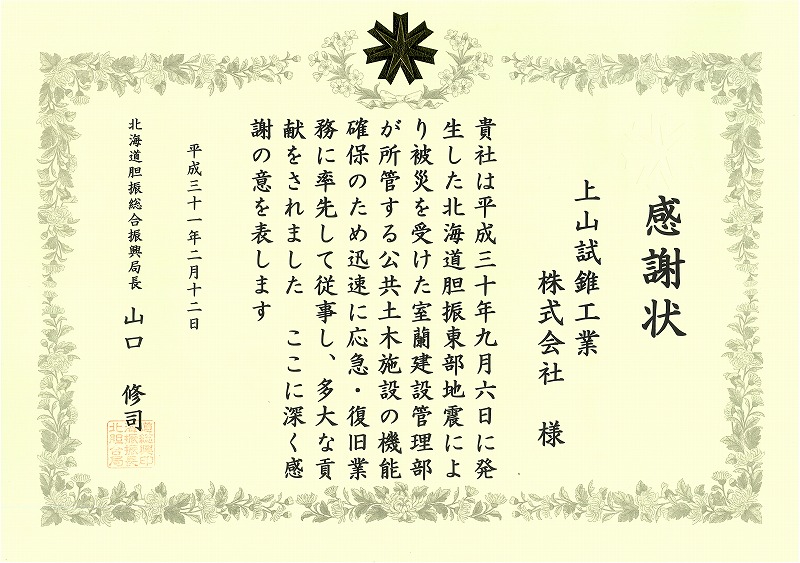 感謝状
上山試錐工業
株式会社 様
貴社は平成三十年九月六日に発
生した北海道胆振東部地震によ
り被災を受けた室蘭建設管理部
が所管する公共土木施設の機能
確保のため迅速に応急・復旧業
務に率先して従事し、多大な貢
献をされました ここに深く感
謝の意を表します
平成三十一年二月十二日
北海道胆振総合振興局長 山口 修司